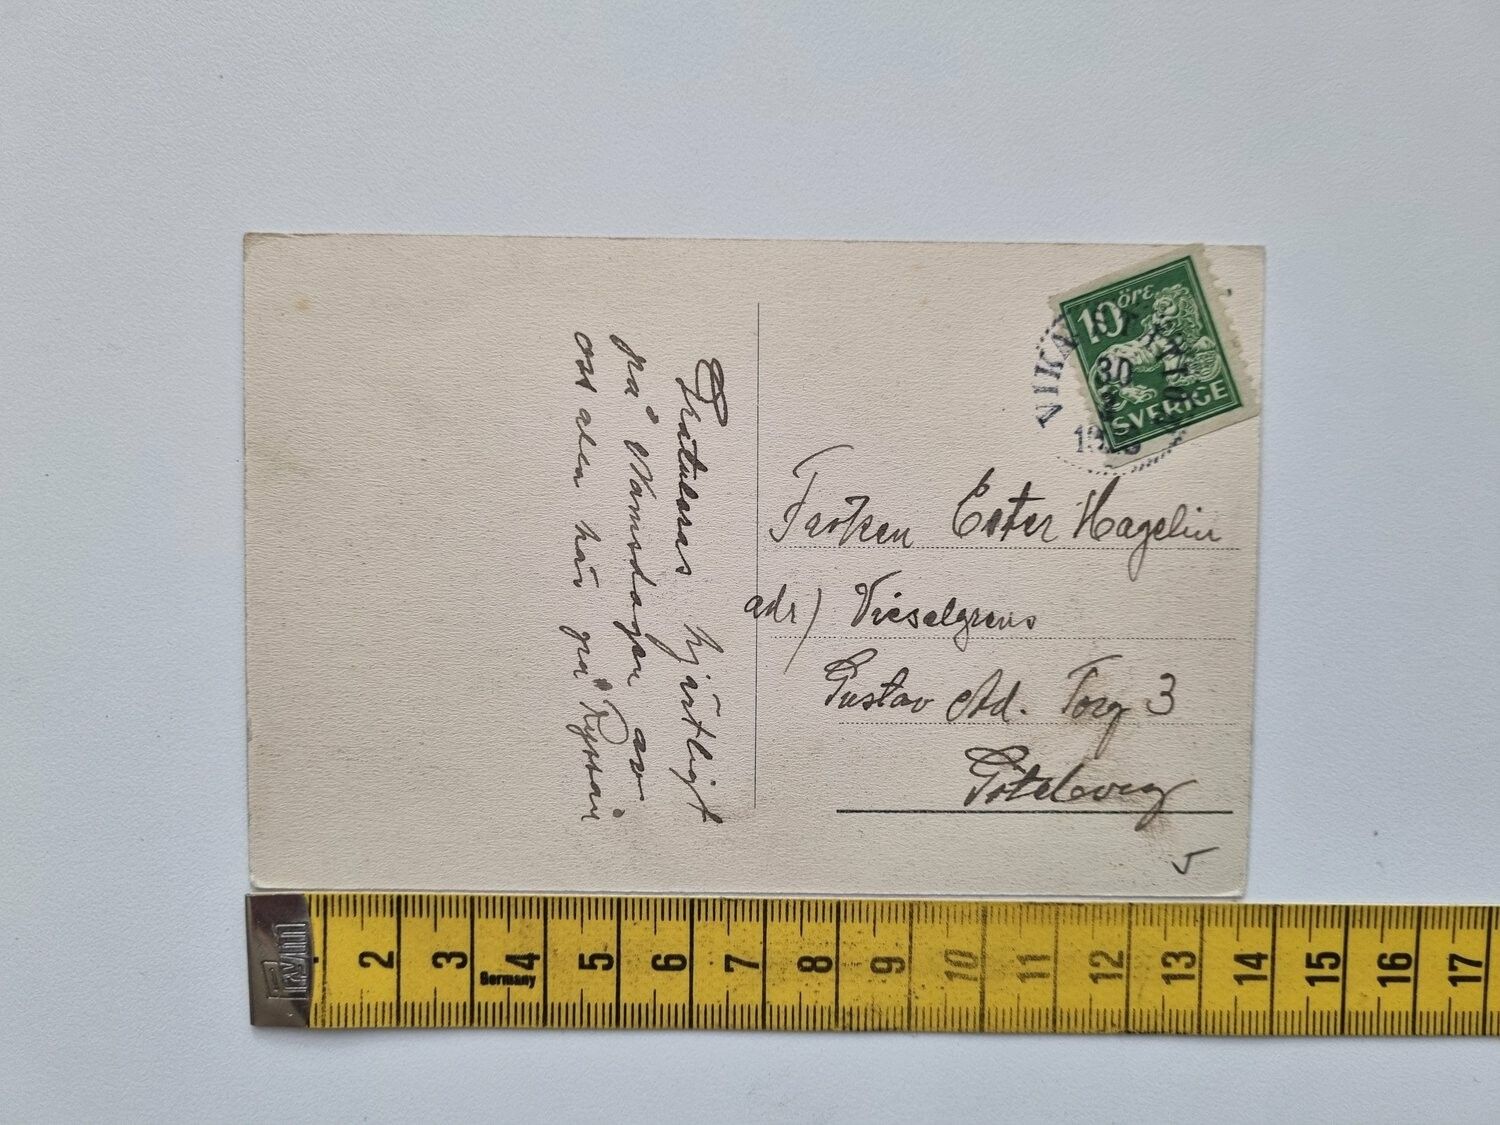 Gratuleras hjärtligt
på Namnsdagen av
oss alla här på
10 öre
SVERIGE
30
Fröken Ester Hagelin
adr) Vieselgrens
Gustav Ad. Torg 3
Göteborg
5
PRYM
2 3 4 5 6 7 8 9 10 11 12 13 14 15 16 17
Germany